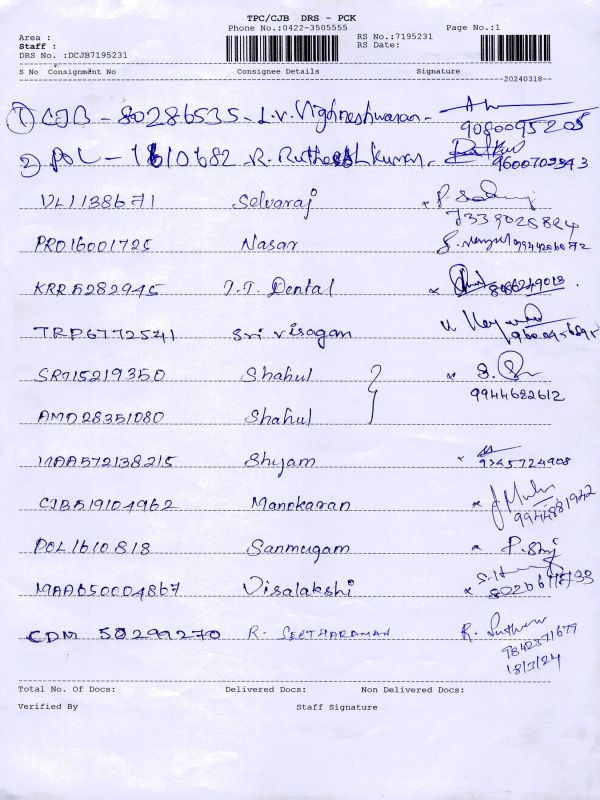 TPC/CJB DRS - PCK
Phone No.:0422-3505555 Page No.:1
Area : RS No.:7195231
Staff : RS Date:
DRS No. :DCJB7195231
S No Consignment No Consignee Details Signature
20240318
1) CJB - 80286535 - L.V. Vighneshwaran -
9080095205
2) POL - 1610682 R. Ruthresh Kumar -
9600702343
VL1138671 Selvaraj x
7339028824
PRO16001725 Nasar 9944206072
KRR5282945 J.T. Dental x 8056249013
TRP6772541 Sri Visagan
SRT15219350 Shahul x
9944682612
AMD28351080 Shahul
MAA572138215 Shyam x
9345724908
CJB519104962 Manokaran x
9944881942
POL1610818 Sanmugam x
MAA650004867 Visalakshi x
CDM 50299270 R. SEETHARAMAN R.
9842371679
18/3/24
Total No. Of Docs: Delivered Docs: Non Delivered Docs:
Verified By Staff Signature